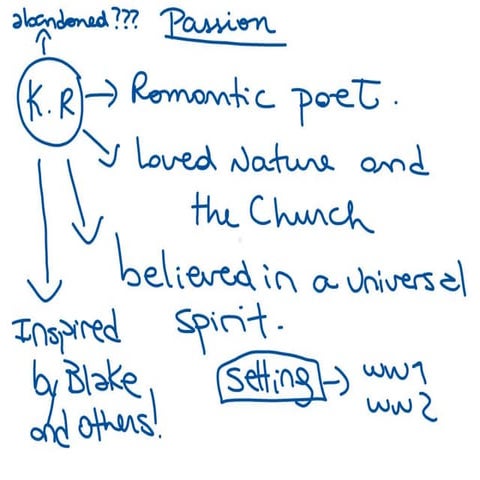 abandoned??? Passion
K.R → Romantic poet.
loved Nature and
the Church
believed in a universal
spirit.
Inspired
by Blake
and others!
Setting → WW1
WW2